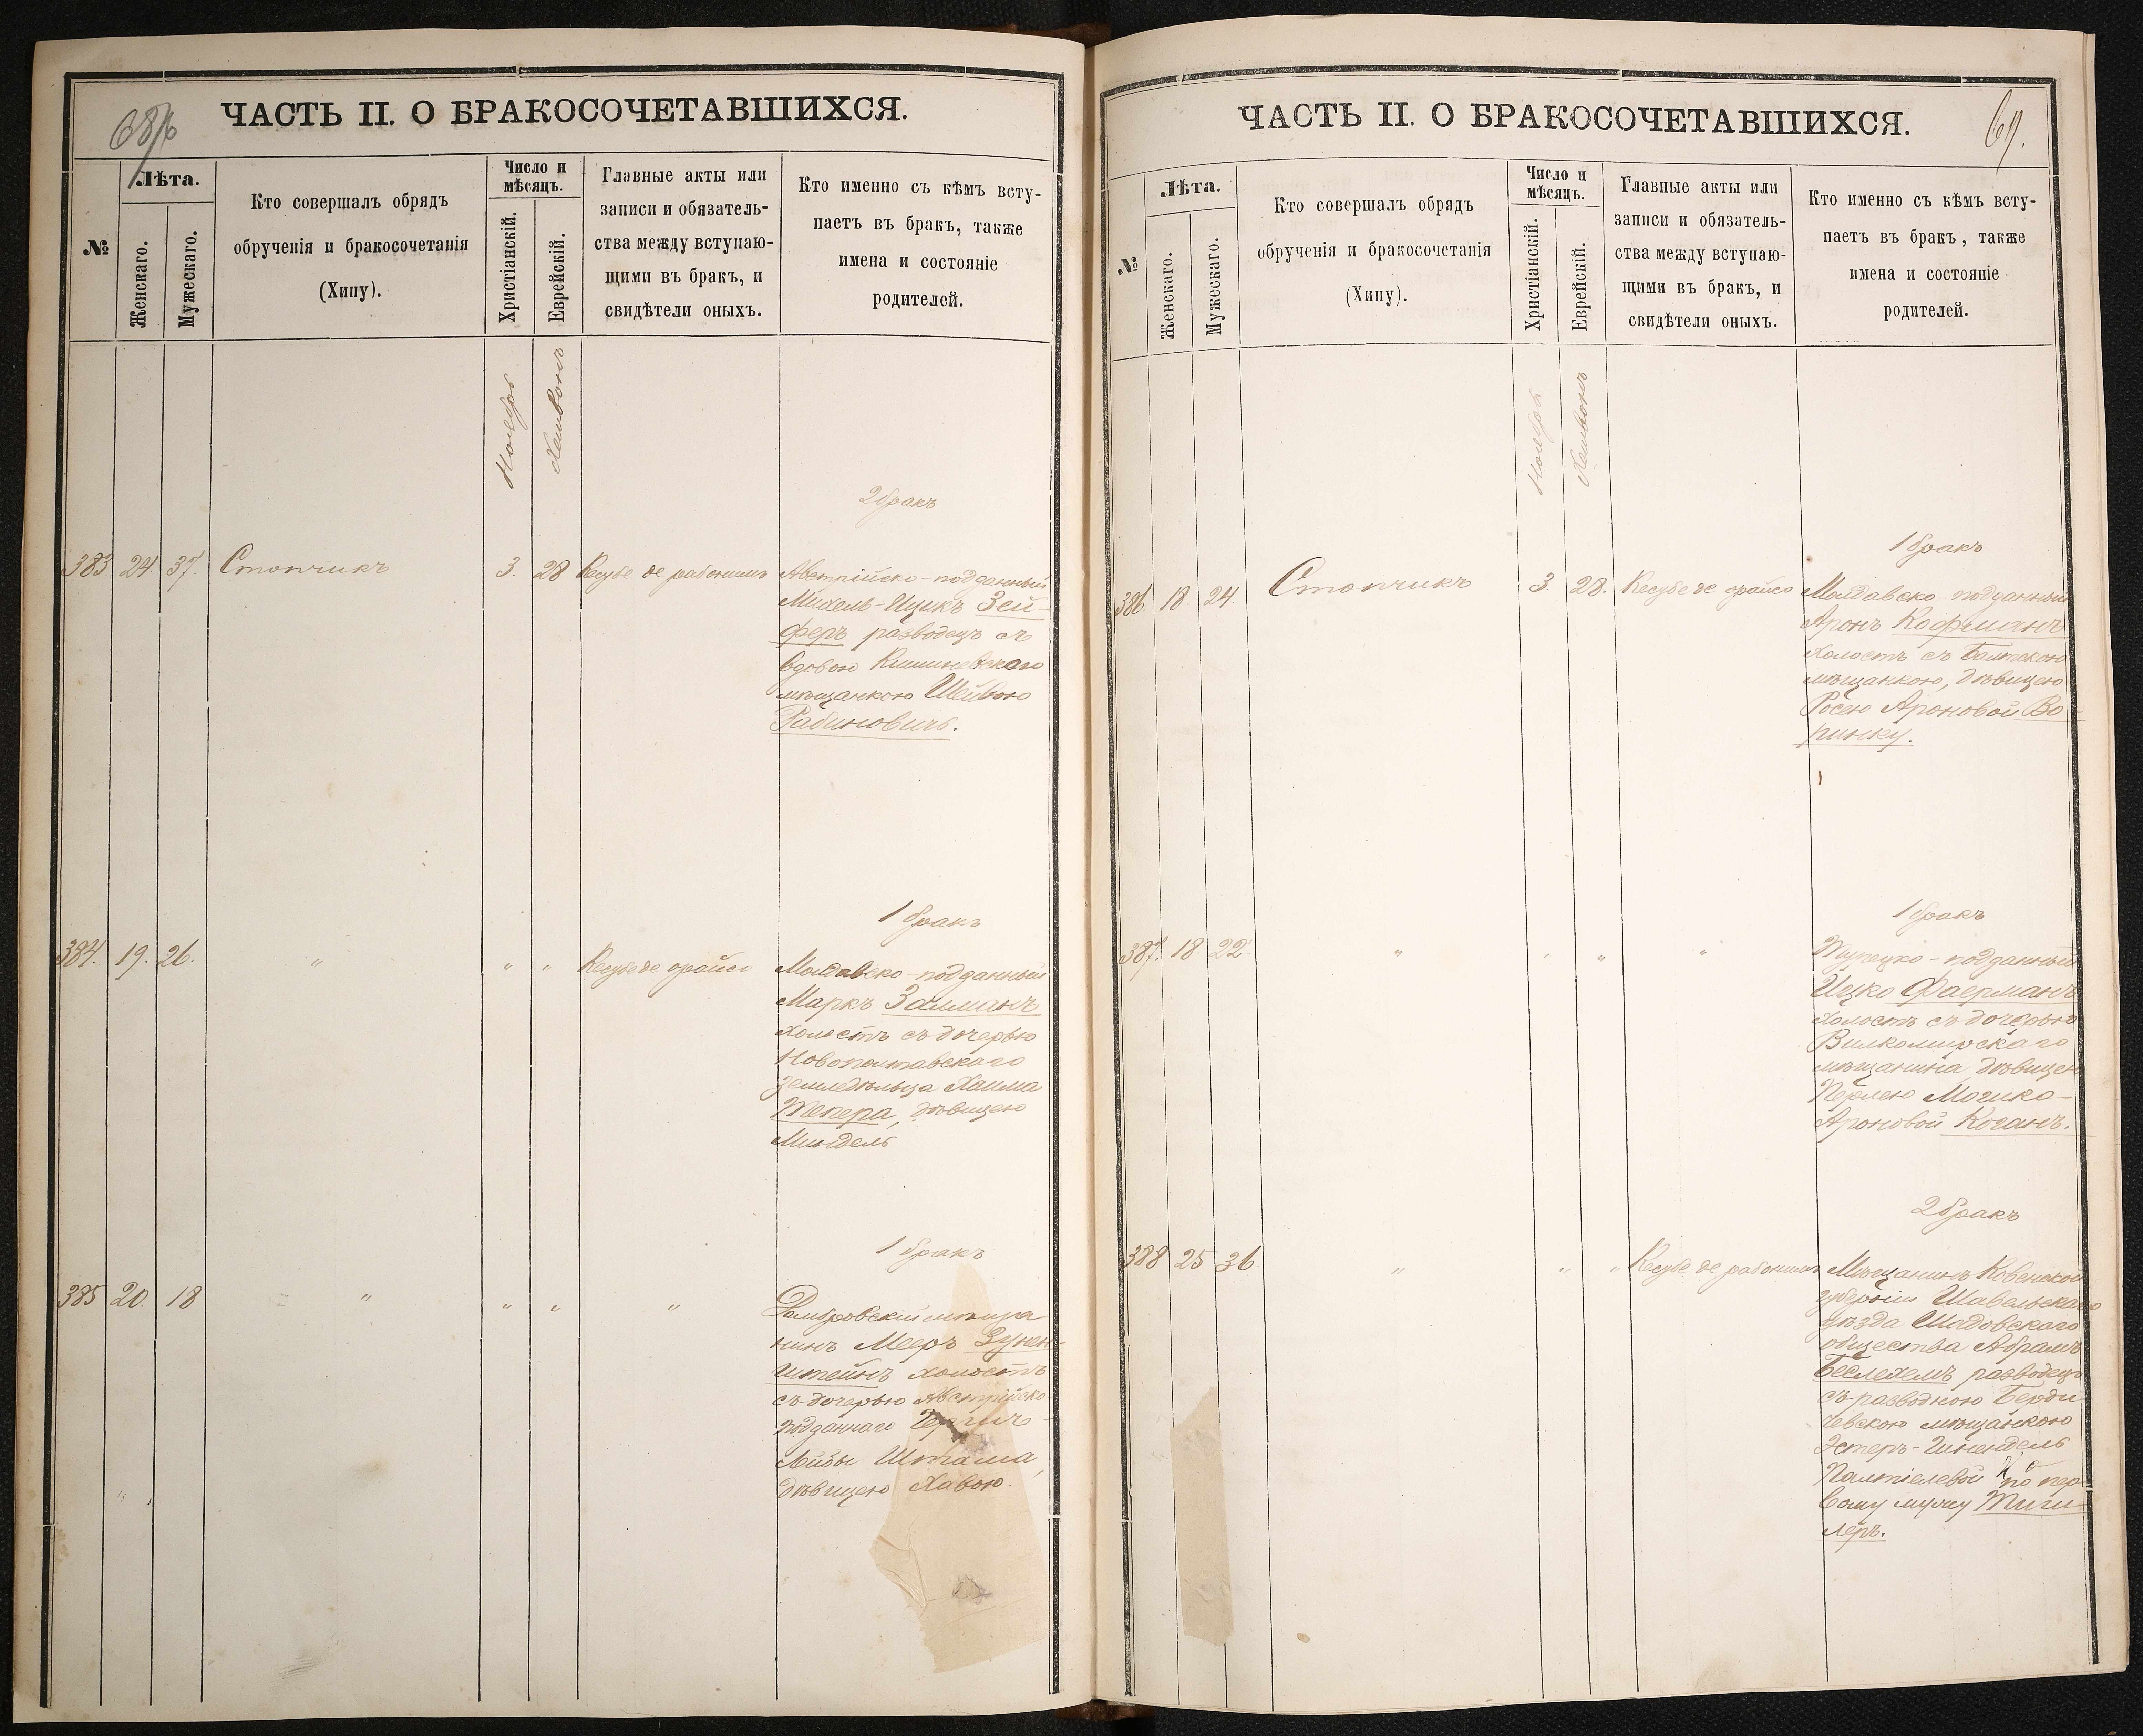 68/б
ЧАСТЬ II. О БРАКОСОЧЕТАВШИХСЯ.
№
Лѣта.
Женскаго.
Мужескаго.
Кто совершалъ обрядъ
обрученія и бракосочетанія
(Хипу).
Число и
мѣсяцъ.
Христіанскій.
Еврейскій.
Главные акты или
записи и обязатель-
ства между вступаю-
щими въ бракъ, и
свидѣтели оныхъ.
Кто именно съ кѣмъ всту-
паетъ въ бракъ, также
имена и состояніе
родителей.
Ноября
Хешвонъ
2 бракъ
383 24. 37. Стопчикъ 3. 28 Кесубе де рабонимъ Австрійско-подданный
Михель-Ицикъ Зей-
феръ разводецъ съ
вдовою Кишиневскаго
мѣщанкою Шейвою
Рабиновичъ.
1 бракъ
384. 19. 26. " " " Кесубе де орайсо Молдавско-подданный
Маркъ Залманъ
холостъ съ дочерью
Новополтавскаго
земледѣльца Хаима
Текера, дѣвицею
Миндель
1 бракъ
385 20. 18 " " " " Домбровскій мѣща
нинъ Мееръ Зунен-
штейнъ холостъ
съ дочерью Австрійско
подданнаго
Лейбы Штама,
дѣвицею Хавою.
ЧАСТЬ II. О БРАКОСОЧЕТАВШИХСЯ.
69.
№
Лѣта.
Женскаго.
Мужескаго.
Кто совершалъ обрядъ
обрученія и бракосочетанія
(Хипу).
Число и
мѣсяцъ.
Христіанскій.
Еврейскій.
Главные акты или
записи и обязатель-
ства между вступаю-
щими въ бракъ, и
свидѣтели оныхъ.
Кто именно съ кѣмъ всту-
паетъ въ бракъ, также
имена и состояніе
родителей.
Ноября
Хешвонъ
1 бракъ
386. 18. 24. Стопчикъ 3. 28. Кесубе де орайсо Молдавско-подданный
Аронъ Кофманъ
холостъ съ Балтскою
мѣщанкою, дѣвицею
Росею Ароновой Во-
ринку.
1 бракъ
387. 18 22. " " " " Турецко-подданный
Ицко Фаерманъ
холостъ съ дочерью
Вилкомирскаго
мѣщанина дѣвицею
Перлею Мошко-
Ароновой Коганъ.
2 бракъ
388 25 36 " " " Кесубе де рабонимъ Мѣщанинъ Ковенской
губерніи Шавельскаго
уѣзда Шадовскаго
общества Абрамъ
Беслехемъ разводецъ
съ разводною Берди
чевскою мѣщанкою
Эстеръ-Шнендель
Палтіелевой по пер-
вому мужу Тиги-
леръ.